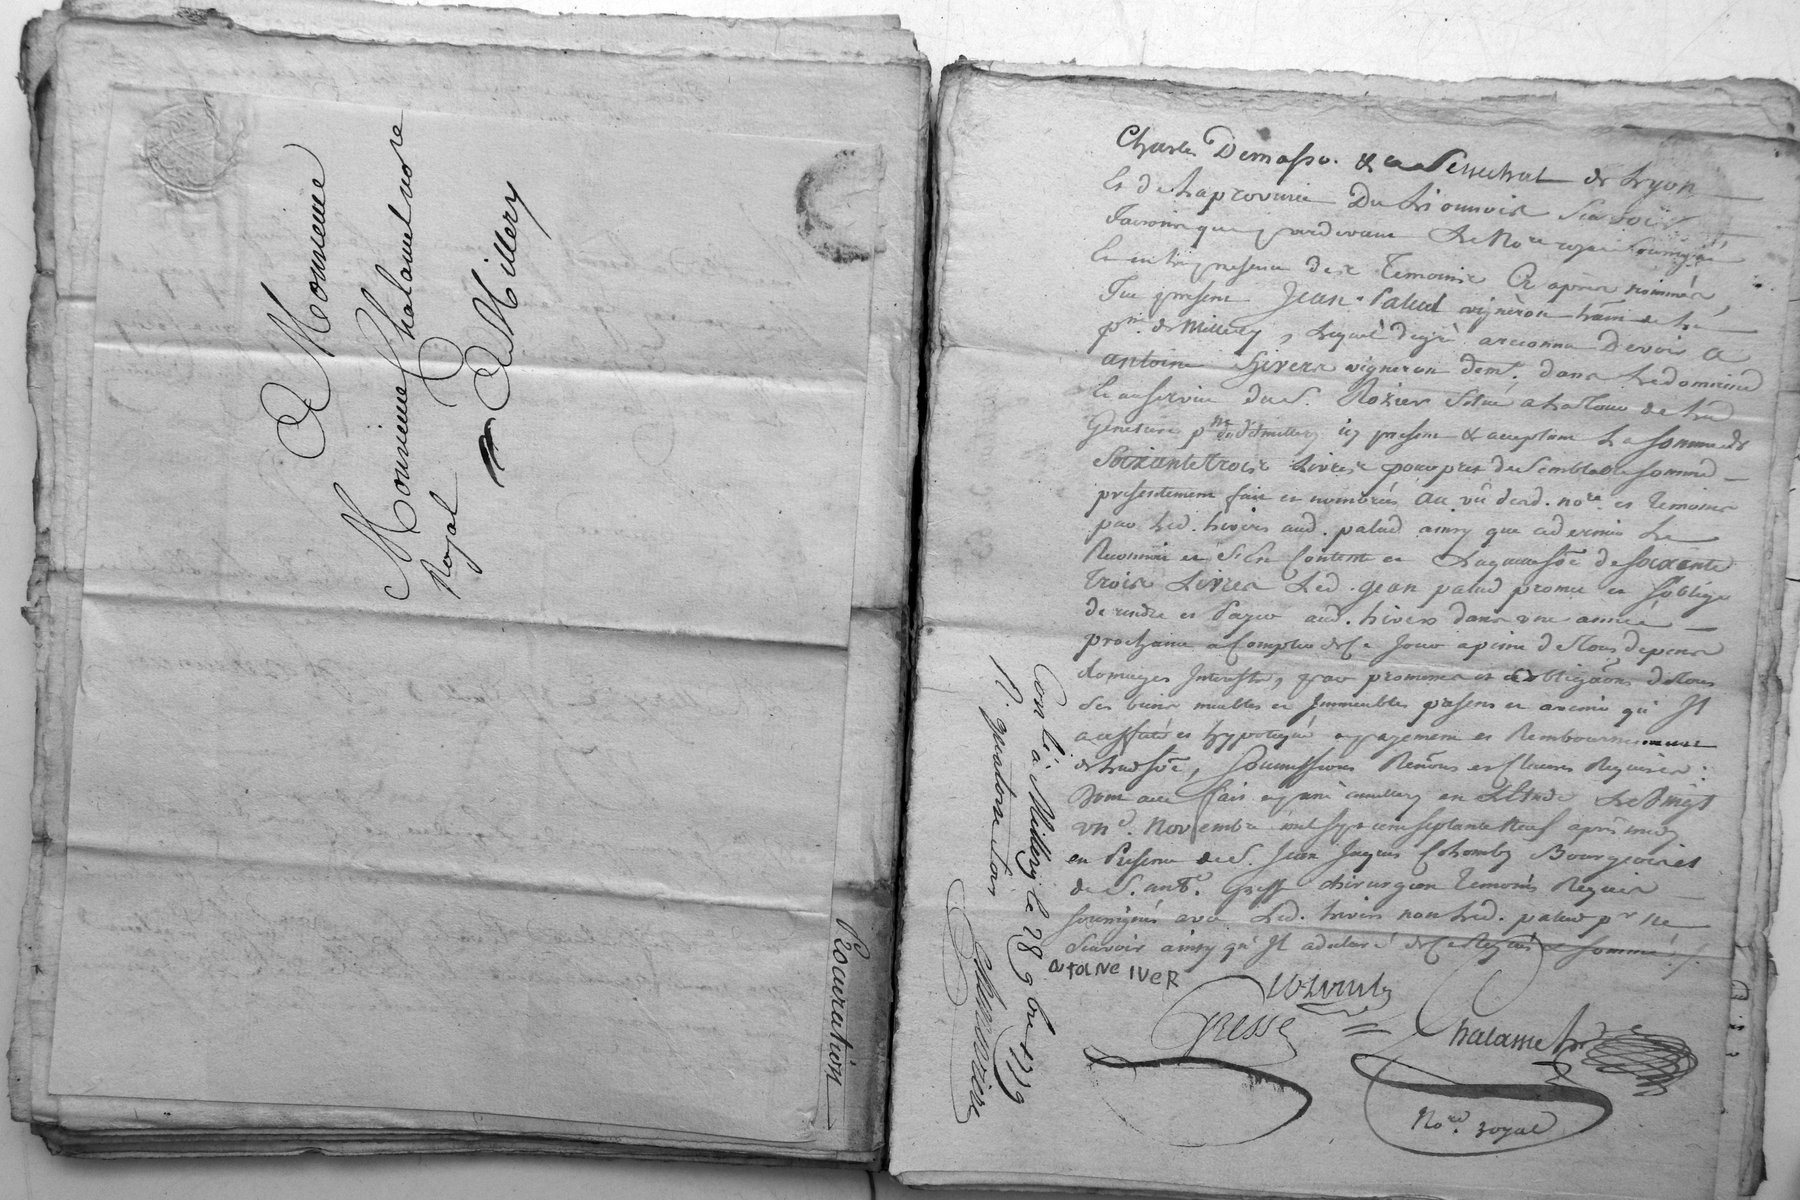 A Monsieur
Monsieur Chalamel notre
Royal
A Millery
Procuration
Charles Demasso. &a Senechal de Lyon
Et de La province Du Lionnois scavoir
faisons que pardevant Le Nore royal soussigné
Et en La presence des Temoins Cy après nommés,
fut present Jean Palud vigneron hãnt de La
psse de Millery, Lequel de gré a reconnu Devoir a
antoine hivers vigneron demt. dans Le domaine
Et au service du S. Rozier situé a La Tour de
psse dud millery icy present & acceptant La somme de
Soixante trois Livres pour pret de semblable somme
presentement fait et nombrés au vû dud. nore. et Temoins
par Led. hivers aud. palud ainsy que ce dernier Le
Reconnoit et s'en Contente et Laquelle sõe de soixante
trois Livres Led. Jean palud promet et s'oblige
de rendre et Payer aud. hivers dans une année
prochaine a Compter de Ce Jour a peine de Tous depens
domages Interests, par promesse et obligãons de Tous
ses biens meubles et Immeubles presens et avenir qu'Il
a affectés et hypotequé au payement et Remboursement
de Lad sõe, soumissions Renõns et Clauses Requises:
Dont acte fait et passé a millery en L'Etude Le vingt
un e. Novembre mil sept cent septante neuf après midy
en Presence de S. Jean Jaques Colomby Bourgeois et
de S. ant. Gresse chirurgien temoins Requis
soussignés avec Led. hivers non Led. palud pr ne
sçavoir ainsy qu'Il a declaré de Ce Requis et sommé ./.
antoine IVER
Colomby
Gresse
Chalamel
Nore. royal
Conlé à Millery le 28 9bre 1779
R. quatorze sols